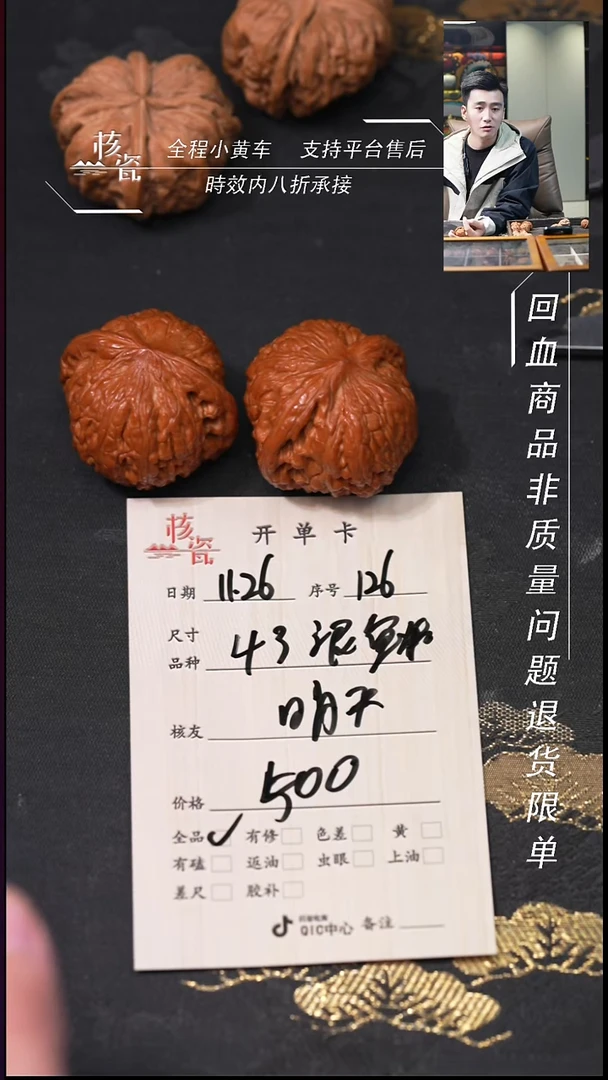 核瓷
全程小黄车 支持平台售后
時效内八折承接
回血商品非质量问题退货限单
核瓷
开单卡
日期 11.26 序号 126
尺寸
品种 43
核友 明天
价格 500
全品✓ 有修 色差 黄
有磕 返油 虫眼 上油
差尺 胶补
QIC中心 备注